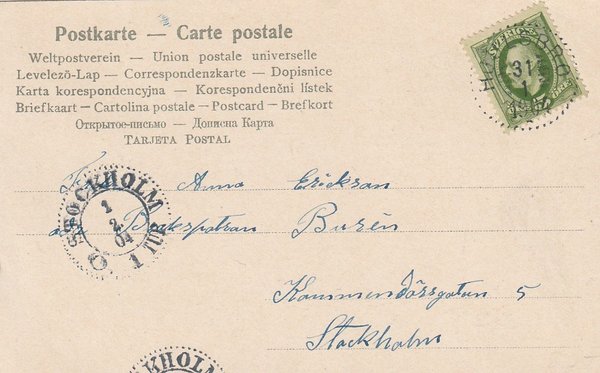 Postkarte — Carte postale
Weltpostverein — Union postale universelle
Levelező-Lap — Correspondenzkarte — Dopisnice
Karta korespondencyjna — Korespondenčni lístek
Briefkaart — Cartolina postale — Postcard — Brefkort
Открытое-письмо — Дописна Карта
TARJETA POSTAL
SVERIGE
31
1
STOCKHOLM
1
2
04
1 TUR
Anna Erickson
Busén
Kommendörsgatan 5
Stockholm
KHOLM